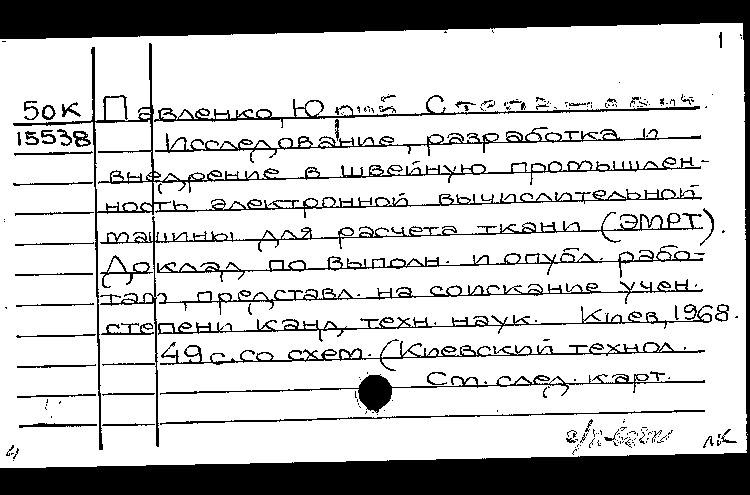 1
50К Павленко, Юрий Степанович.
15538 Исследование, разработка и
внедрение в швейную промышлен-
ность электронной вычислительной
машины для расчета ткани (ЭМРТ).
Доклад по выполн. и опубл. рабо-
там, представл. на соискание учен.
степени канд. техн. наук. Киев, 1968.
49 с. со схем. (Киевский технол.
См. след. карт.
лк